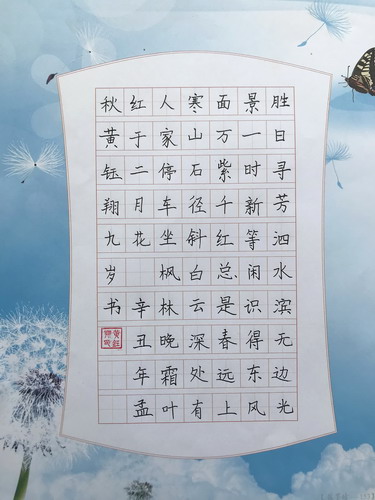 胜日寻芳泗水滨无边光
景一时新等闲识得东风
面万紫千红总是春远上
寒山石径斜白云深处有
人家停车坐枫林晚霜叶
红于二月花 辛丑年孟
秋黄钰翔九岁书